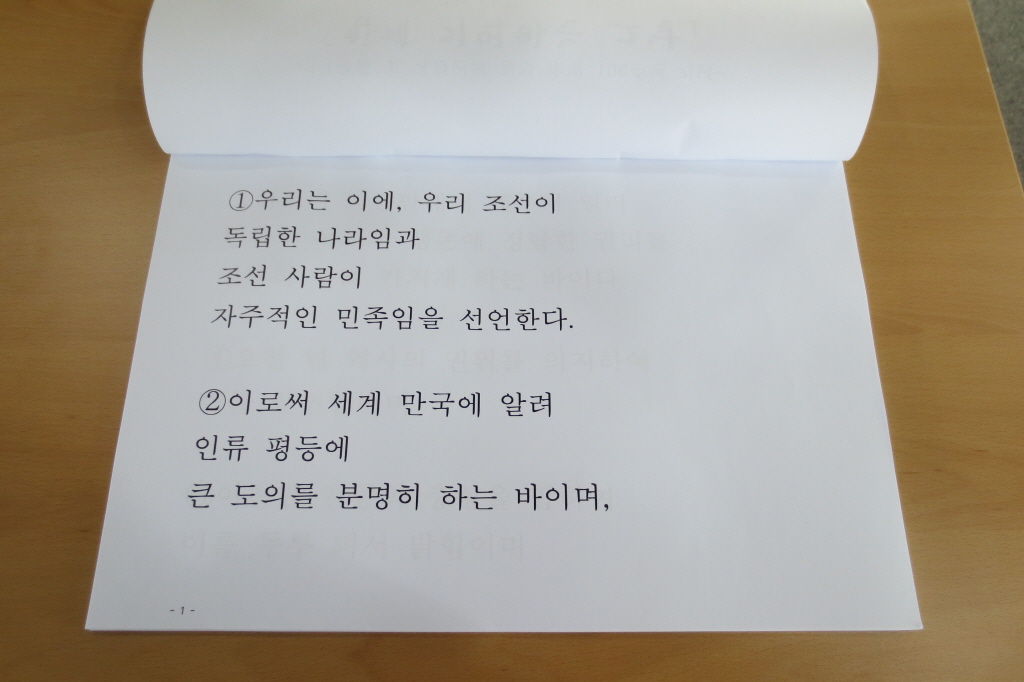 ①우리는 이에, 우리 조선이
독립한 나라임과
조선 사람이
자주적인 민족임을 선언한다.
②이로써 세계 만국에 알려
인류 평등에
큰 도의를 분명히 하는 바이며,
- 1 -